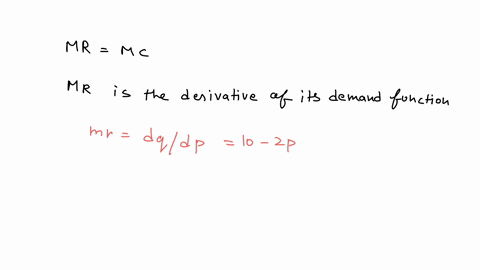 MR = MC
MR is the derivative of its demand function
mr = dq/dp = 10 - 2p